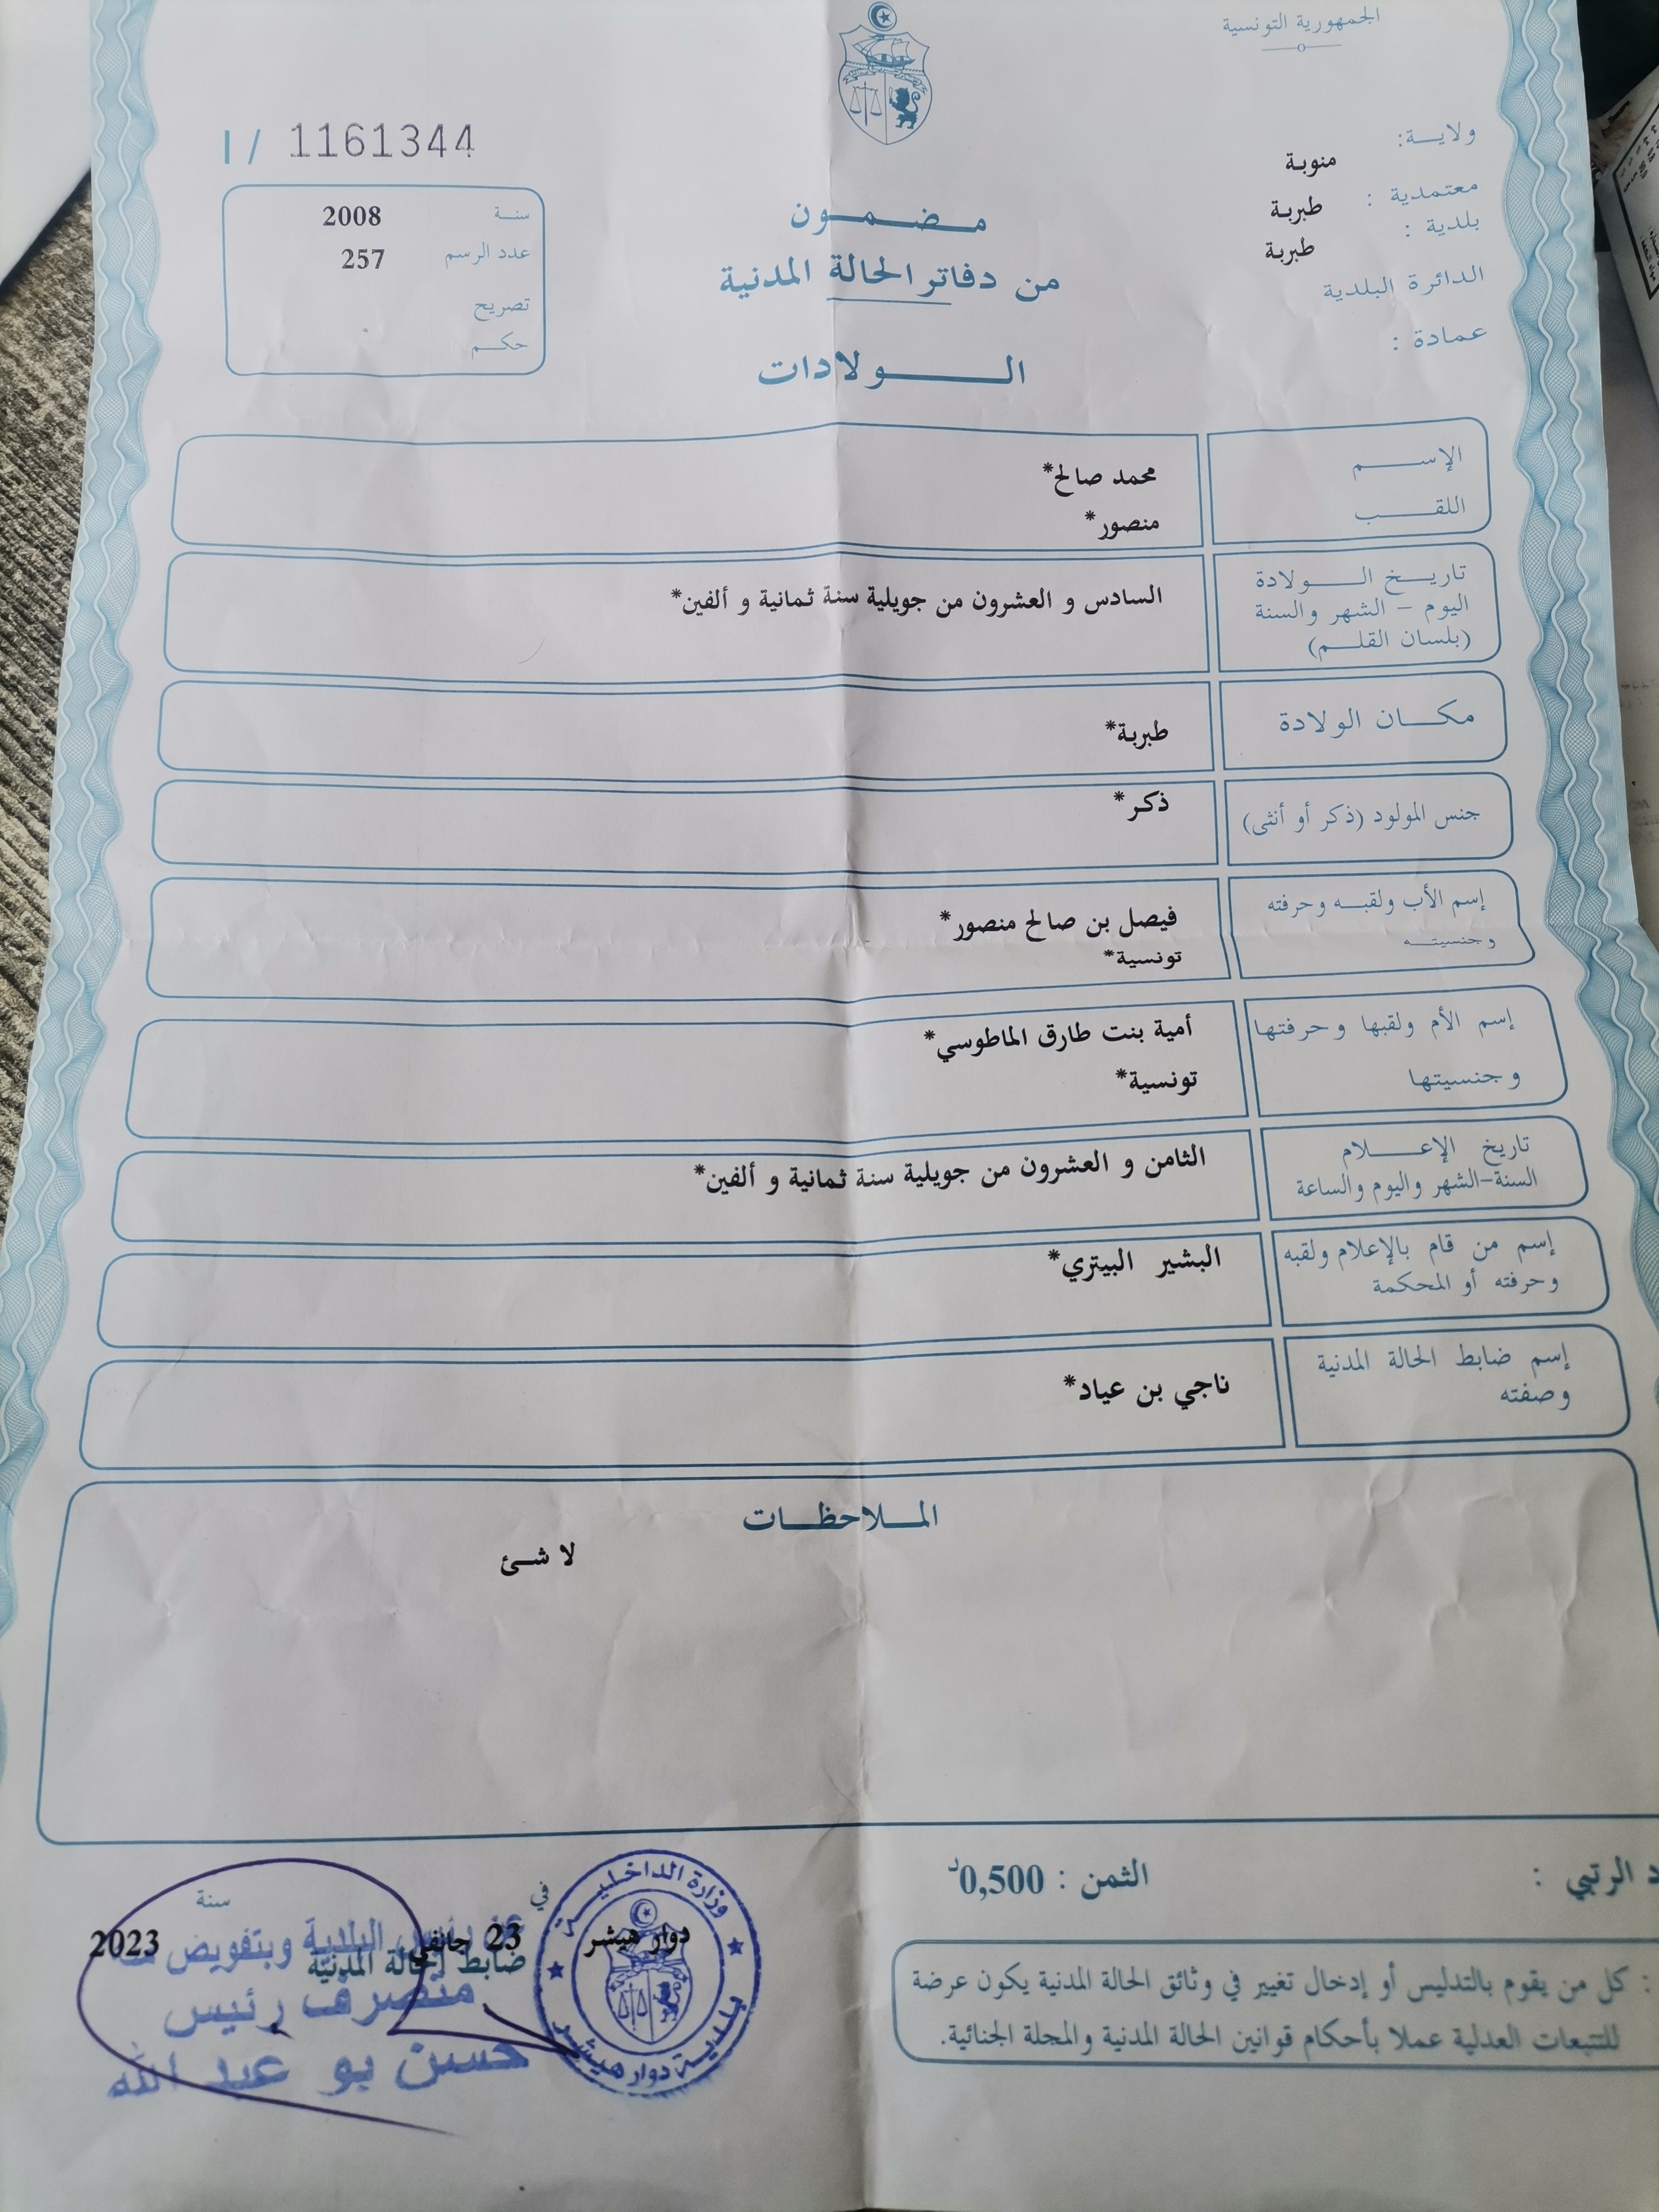 الجمهورية التونسية
ولاية:
منوبة
معتمدية :
طبربة
بلدية :
طبربة
الدائرة البلدية
عمادة :
I / 1161344
سنة 2008
عدد الرسم 257
تصريح
حكم
مضمون
من دفاتر الحالة المدنية
الولادات
الإسم محمد صالح*
اللقب منصور*
تاريخ الولادة
اليوم - الشهر والسنة
(بلسان القلم)
السادس و العشرون من جويلية سنة ثمانية و ألفين*
مكان الولادة طبربة*
جنس المولود (ذكر أو أنثى) ذكر*
إسم الأب ولقبه وحرفته
وجنسيته
فيصل بن صالح منصور*
تونسية*
إسم الأم ولقبها وحرفتها
وجنسيتها
أمية بنت طارق الماطوسي*
تونسية*
تاريخ الإعلام
السنة-الشهر واليوم والساعة
الثامن و العشرون من جويلية سنة ثمانية و ألفين*
إسم من قام بالإعلام ولقبه
وحرفته أو المحكمة
البشير البيتري*
إسم ضابط الحالة المدنية
وصفته
ناجي بن عياد*
الملاحظات
لا شئ
د الرتبي :
الثمن : 0,500د
: كل من يقوم بالتدليس أو إدخال تغيير في وثائق الحالة المدنية يكون عرضة
للتتبعات العدلية عملا بأحكام قوانين الحالة المدنية والمجلة الجنائية.
وزارة الداخلية
بلدية دوار هيشر
دوار هيشر في 23 جانفي سنة 2023
ضابط الحالة المدنية
عن رئيس البلدية وبتفويض منه
متصرف رئيس
حسن بو عبد الله